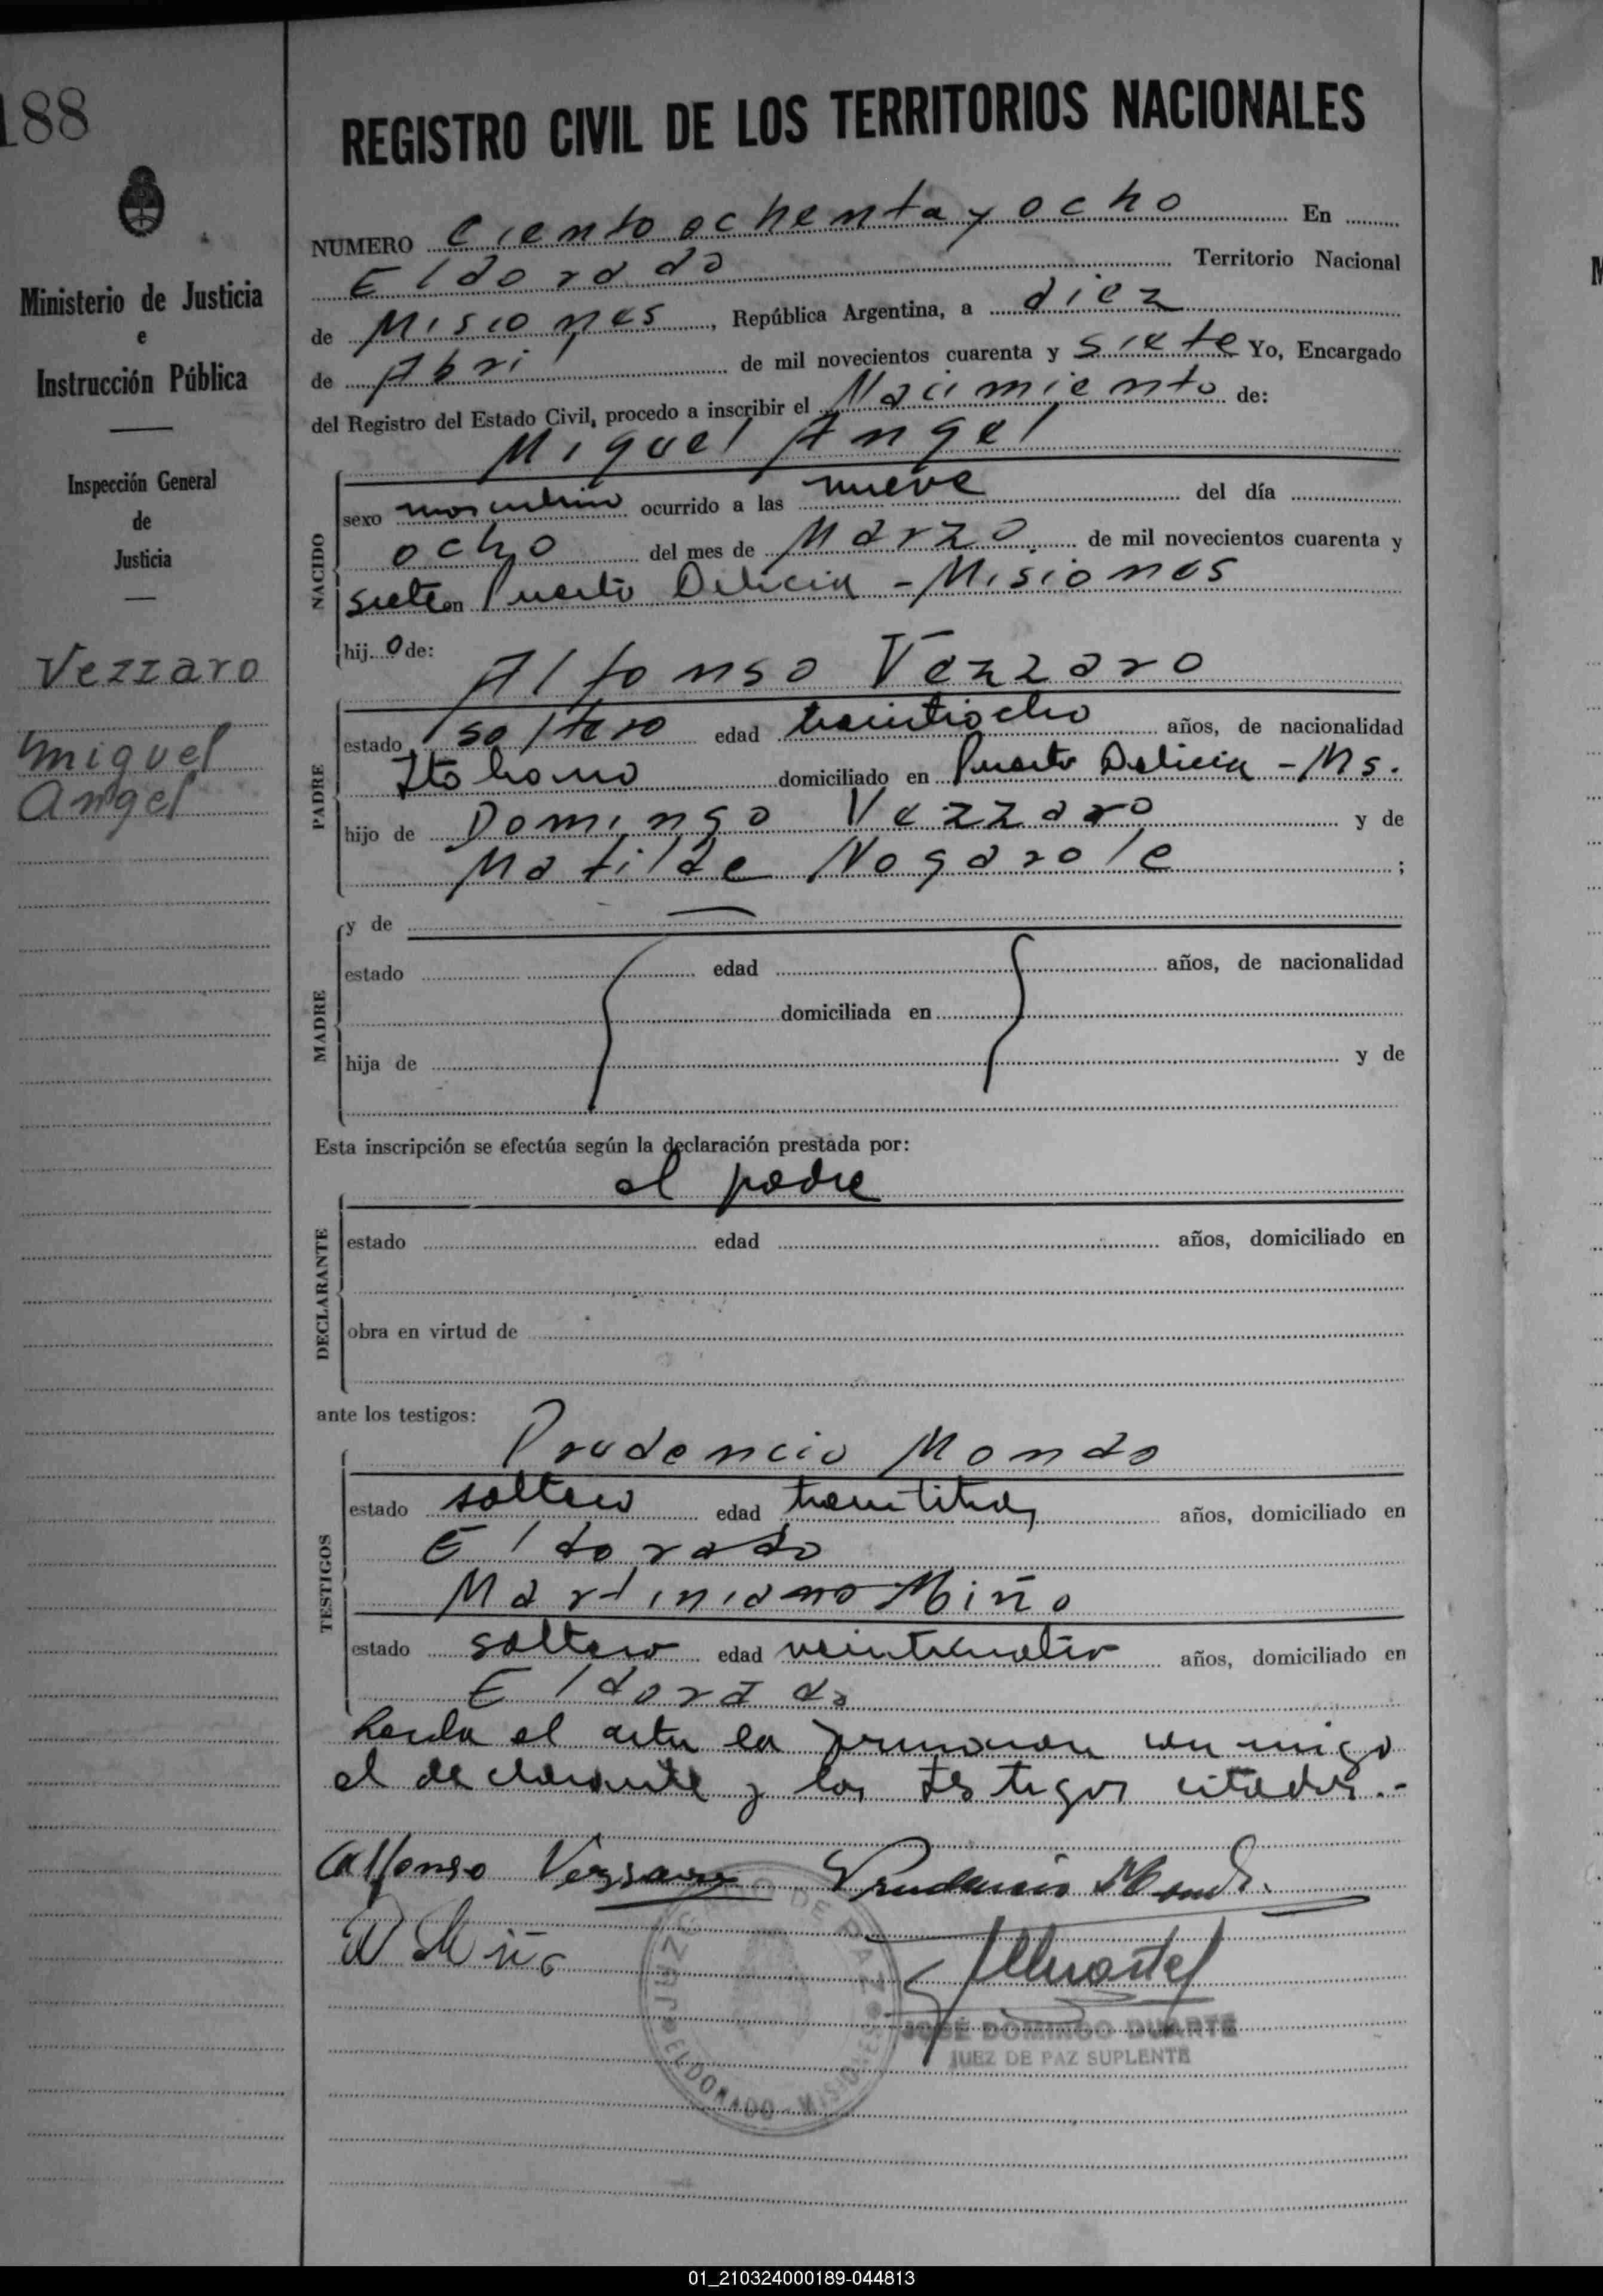 188
Ministerio de Justicia
e
Instrucción Pública
Inspección General
de
Justicia
Vezzaro
Miguel
Angel
REGISTRO CIVIL DE LOS TERRITORIOS NACIONALES
NUMERO Ciento ochenta y ocho En
Eldorado Territorio Nacional
de Misiones, República Argentina, a diez
de Abril de mil novecientos cuarenta y siete Yo, Encargado
del Registro del Estado Civil, procedo a inscribir el Nacimiento de:
Miguel Angel
NACIDO
sexo masculino ocurrido a las nueve del día
ocho del mes de Marzo de mil novecientos cuarenta y
siete en Puerto Delicia - Misiones
hijo de:
Alfonso Vezzaro
PADRE
estado soltero edad treintiocho años, de nacionalidad
Italiano domiciliado en Puerto Delicia - Ms.
hijo de Domingo Vezzaro y de
Matilde Nogarole ;
MADRE
y de —
estado edad años, de nacionalidad
domiciliada en
hija de y de
Esta inscripción se efectúa según la declaración prestada por:
el padre
DECLARANTE
estado edad años, domiciliado en
obra en virtud de
ante los testigos:
Prudencio Mondo
TESTIGOS
estado soltero edad treintitres años, domiciliado en
Eldorado
Martiniano Miño
estado soltero edad veinticuatro años, domiciliado en
Eldorado
Leida el acta la firmaron conmigo
el declarante y los testigos citados.-
Alfonso Vezzaro Prudencio Mondo
M Miño
JUZGADO DE PAZ
ELDORADO - MISIONES
JOSÉ DOMINGO DUARTE
JUEZ DE PAZ SUPLENTE
01_210324000189-044813